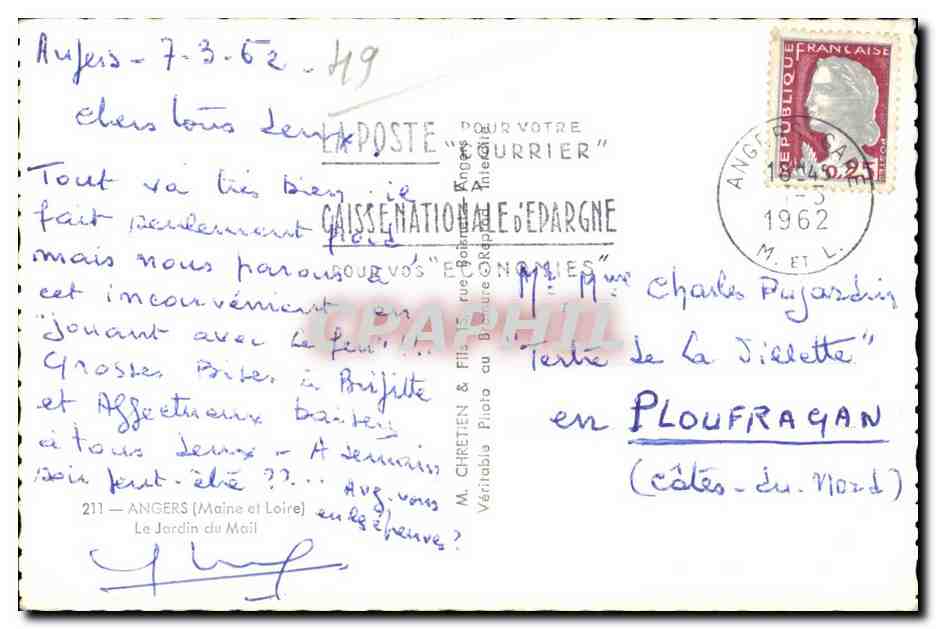 Angers - 7-3-62 - 49
Chers tous deux,
Tout va très bien. il
fait seulement froid
mais nous parons à
cet inconvénient en
"jouant avec le feu"!!
Grosses Bises à Brigitte
et Affectueux baisers
à tous deux - A demain
soir peut-être ??...
Avez-vous
eu les épreuves?
211 - ANGERS (Maine et Loire)
Le Jardin du Mail
LA POSTE POUR VOTRE
"COURRIER"
LA
CAISSE NATIONALE D'EPARGNE
POUR VOS "ECONOMIES"
M. CHRETIEN & Fils, 15, rue Boisnet, Angers
Véritable Photo au Bromure Reproduction Interdite
REPUBLIQUE FRANCAISE
POSTES
0,25
ANGERS GARE
18H45
7-3
1962
M. ET L.
Mr Mme Charles Dujardin
"Tertre de La Villette"
en PLOUFRAGAN
(Côtes-du-Nord)
CPAPHIL